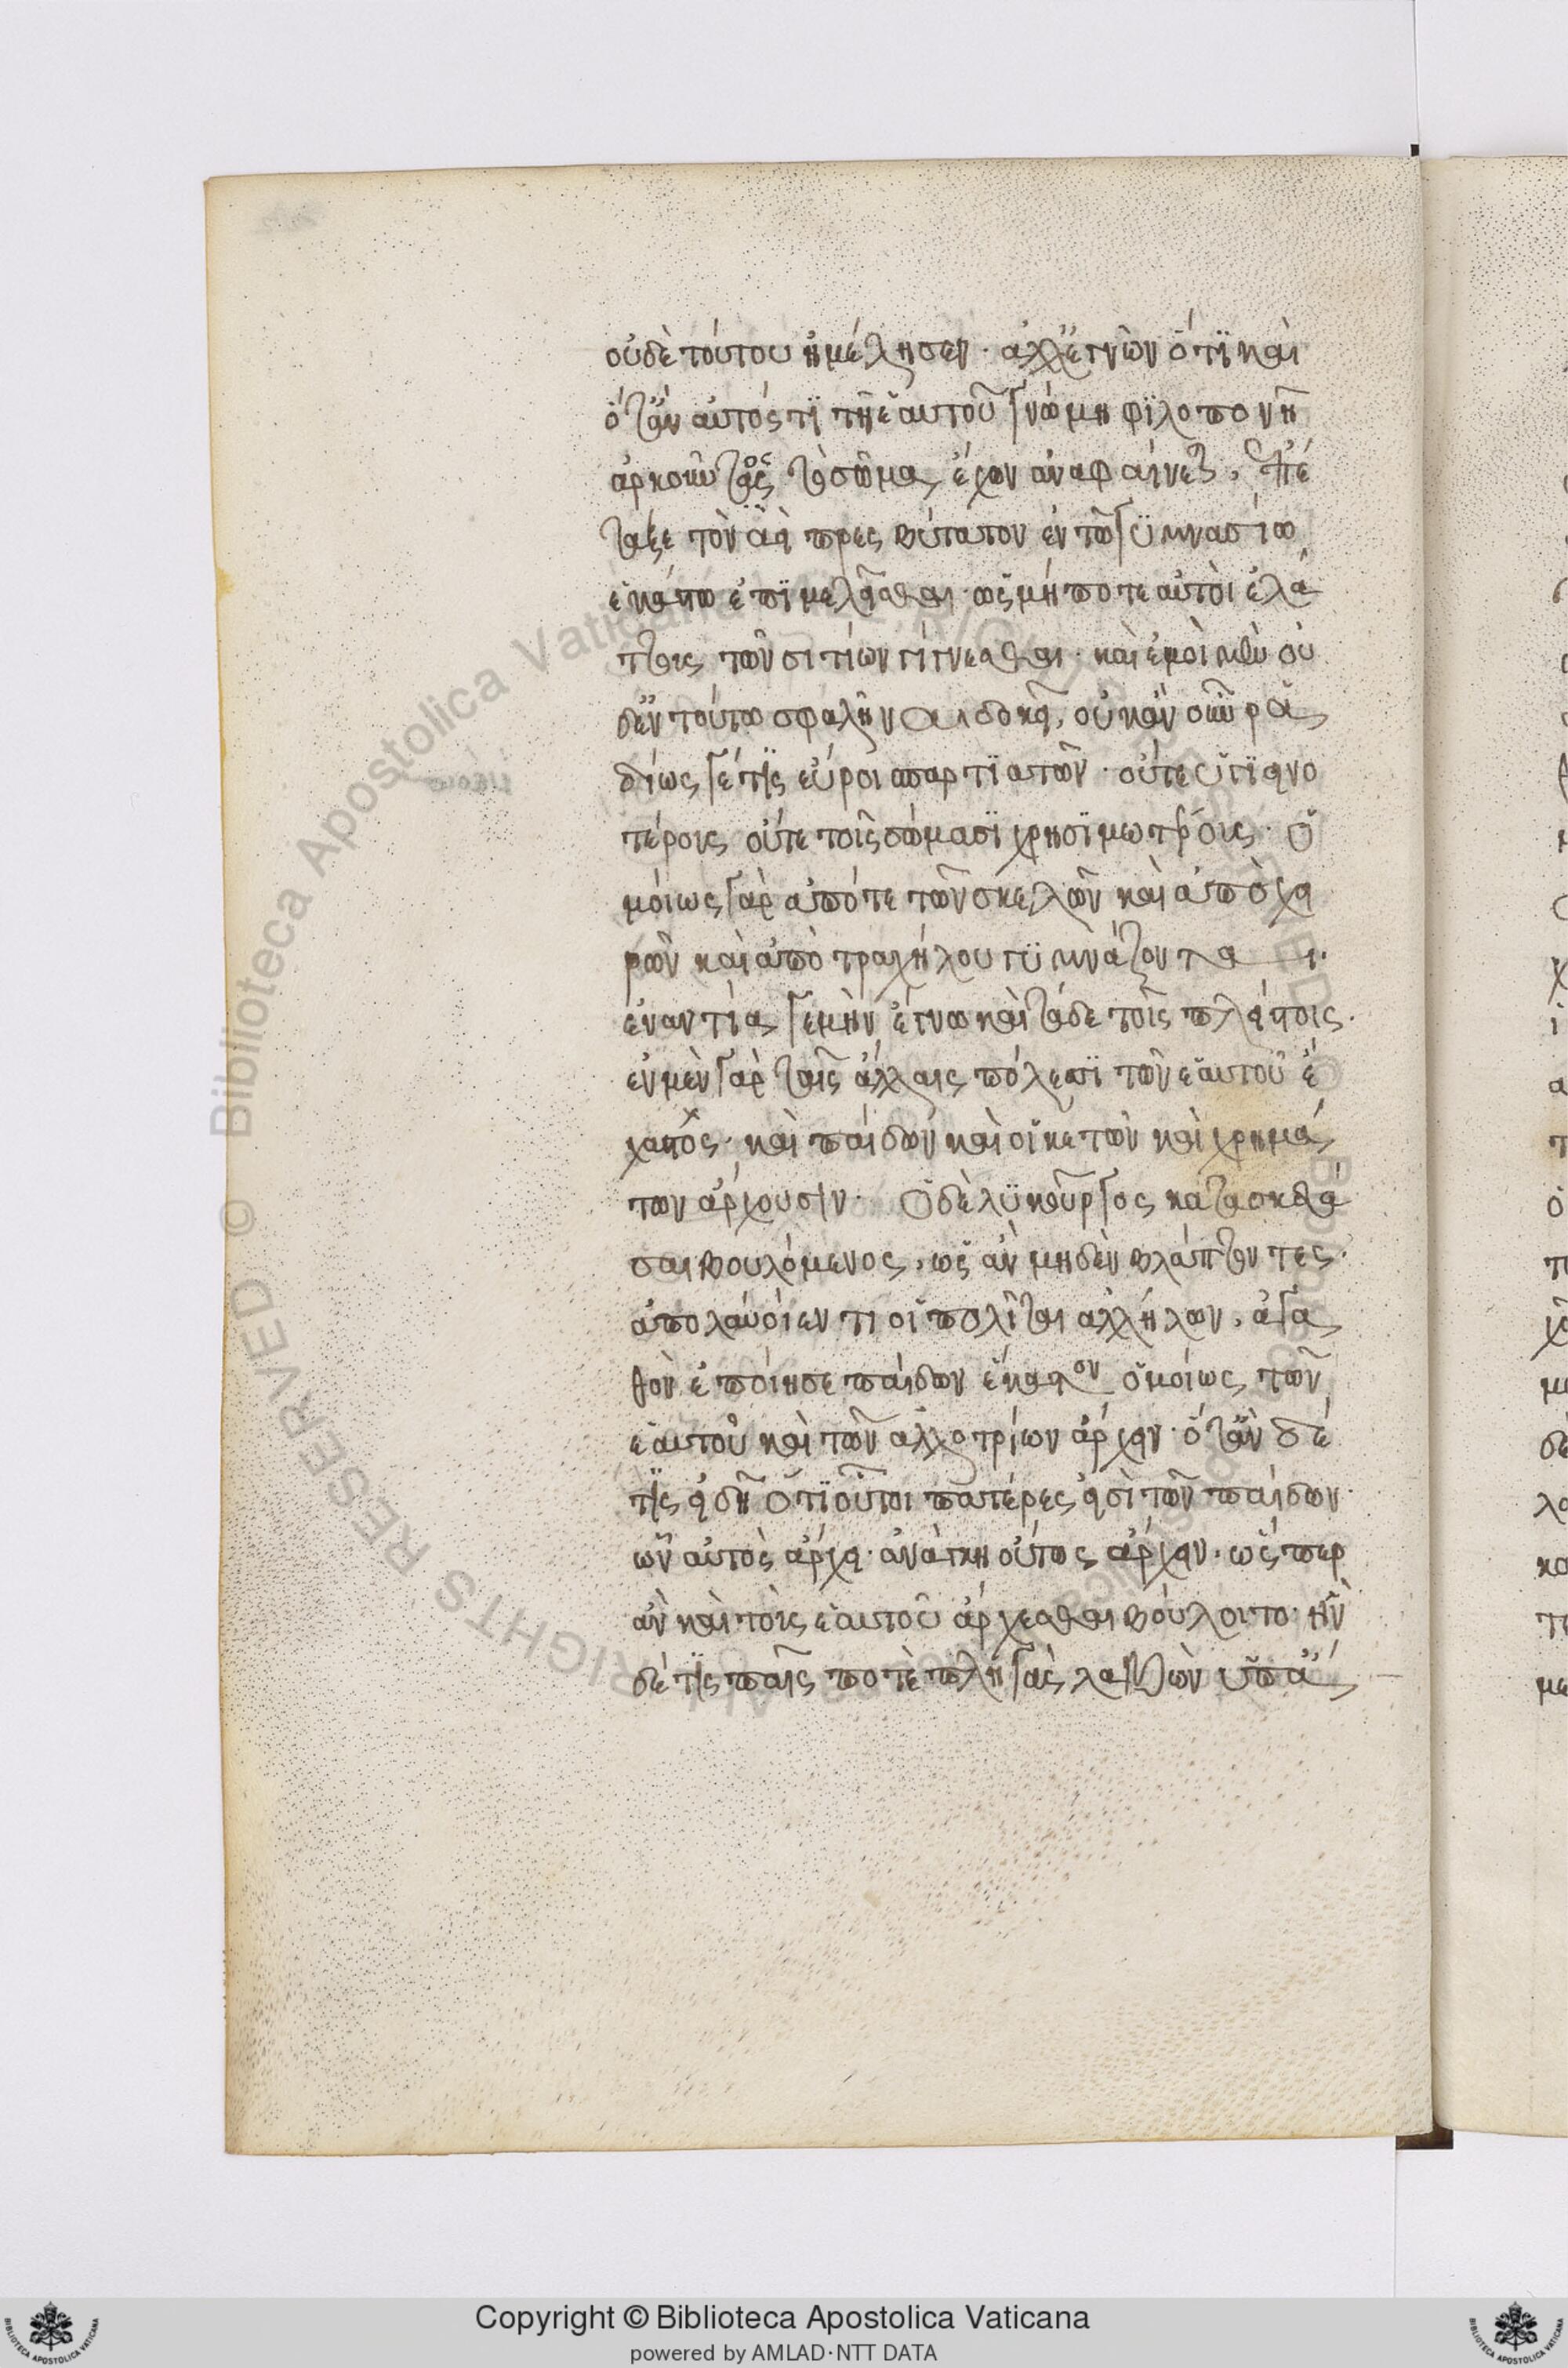 οὐδὲ τούτου ἠμέλησεν· ἀλλ' ἔγνων ὅτι καὶ
ὅταν αὐτός τι τῇ ἑαυτοῦ γνώμῃ φιλοπονῇ
ἀρκούντως τὸ σῶμα ἔχων ἀναφαίνεται, ἐπέ
ταξε τὸν ἀεὶ πρεσβύτατον ἐν τῶ γυμνασίω
ἑκάστω ἐπιμελεῖσθαι· ὡς μήποτε αὐτοὶ ἐλά
ττοις τῶν σιτίων γίγνεσθαι· καὶ ἐμοὶ μὲν οὐ
δ' ἐν τούτω σφαλῆναι δοκεῖ, οὐκ ἂν οὖν ῥα
δίως γέ τις εὕροι σπαρτιατῶν· οὔτε ὑγιεινο
τέρους οὔτε τοῖς σώμασι χρησιμωτέρους· ὁ
μοίως γὰρ ἀπό τε τῶν σκελῶν καὶ ἀπὸ χει
ρῶν καὶ ἀπὸ τραχήλου γυμνάζονται.
ἐναντία γε μὴν ἔγνω καὶ τάδε τοῖς πλείστοις.
ἐν μὲν γὰρ ταῖς ἄλλαις πόλεσι τῶν ἑαυτοῦ ἕ
καστος· καὶ παίδων καὶ οἰκετῶν καὶ χρημά
των ἄρχουσιν· Ὁ δὲ λυκοῦργος κατασκευά
σαι βουλόμενος, ὡς ἂν μηδὲν βλάπτοντες·
ἀπολαύοιέν τι οἱ πολῖται ἀλλήλων, ἀγα
θὸν ἐποίησε παίδων ἕκαστον ὁμοίως τῶν
ἑαυτοῦ καὶ τῶν ἀλλοτρίων ἄρχειν· ὅταν δέ
τις εἰδῇ ὅτι οὗτοι πατέρες εἰσὶ τῶν παίδων·
ὧν αὐτὸς ἄρχει· ἀνάγκη οὕτως ἄρχειν· ὥσπερ
ἂν καὶ τοῖς ἑαυτοῦ ἄρχεσθαι βούλοιτο· ἢν
δέ τις παῖς ποτὲ πληγὰς λαβὼν ὑπ' ἄ
Copyright © Biblioteca Apostolica Vaticana
powered by AMLAD·NTT DATA